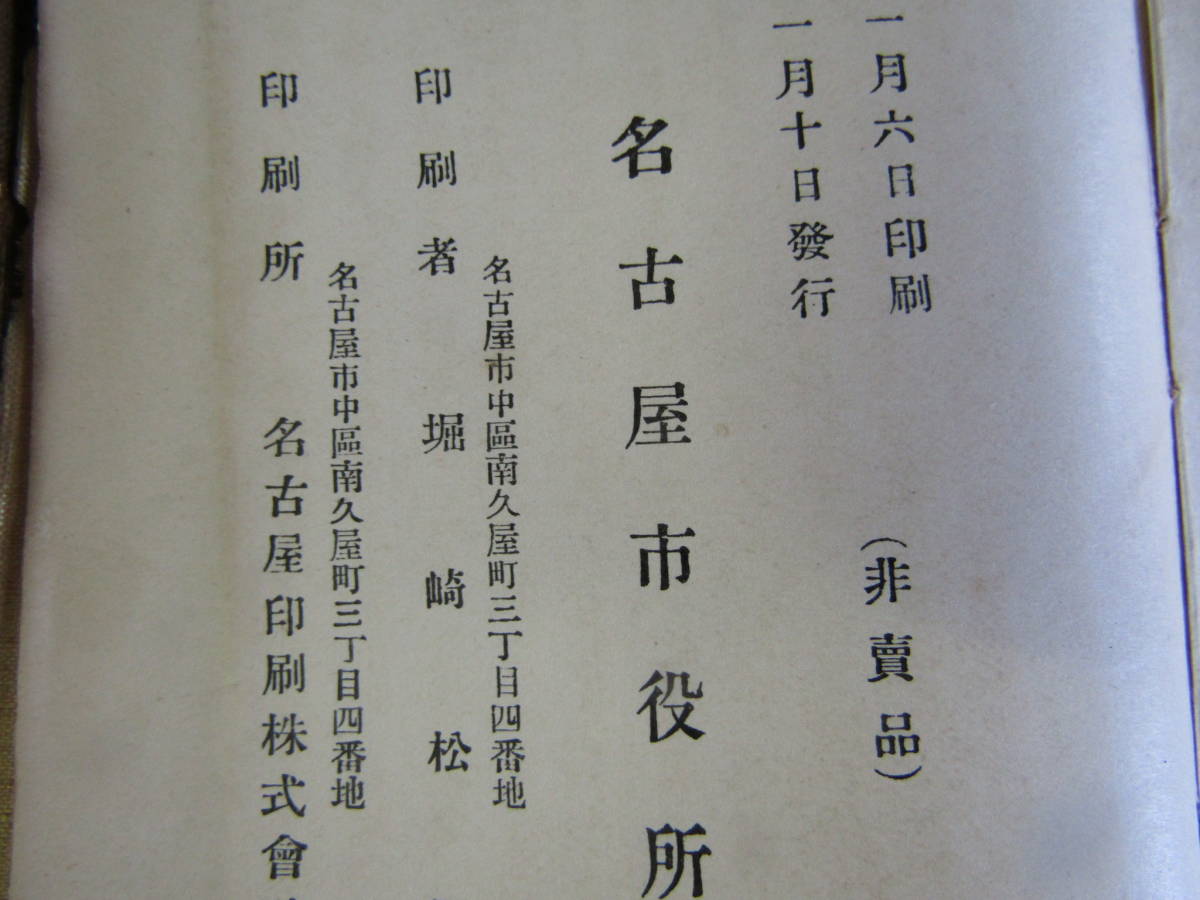 一月六日印刷
(非賣品)
一月十日發行
名古屋市役所
名古屋市中區南久屋町三丁目四番地
印刷者 堀崎松
名古屋市中區南久屋町三丁目四番地
印刷所 名古屋印刷株式會